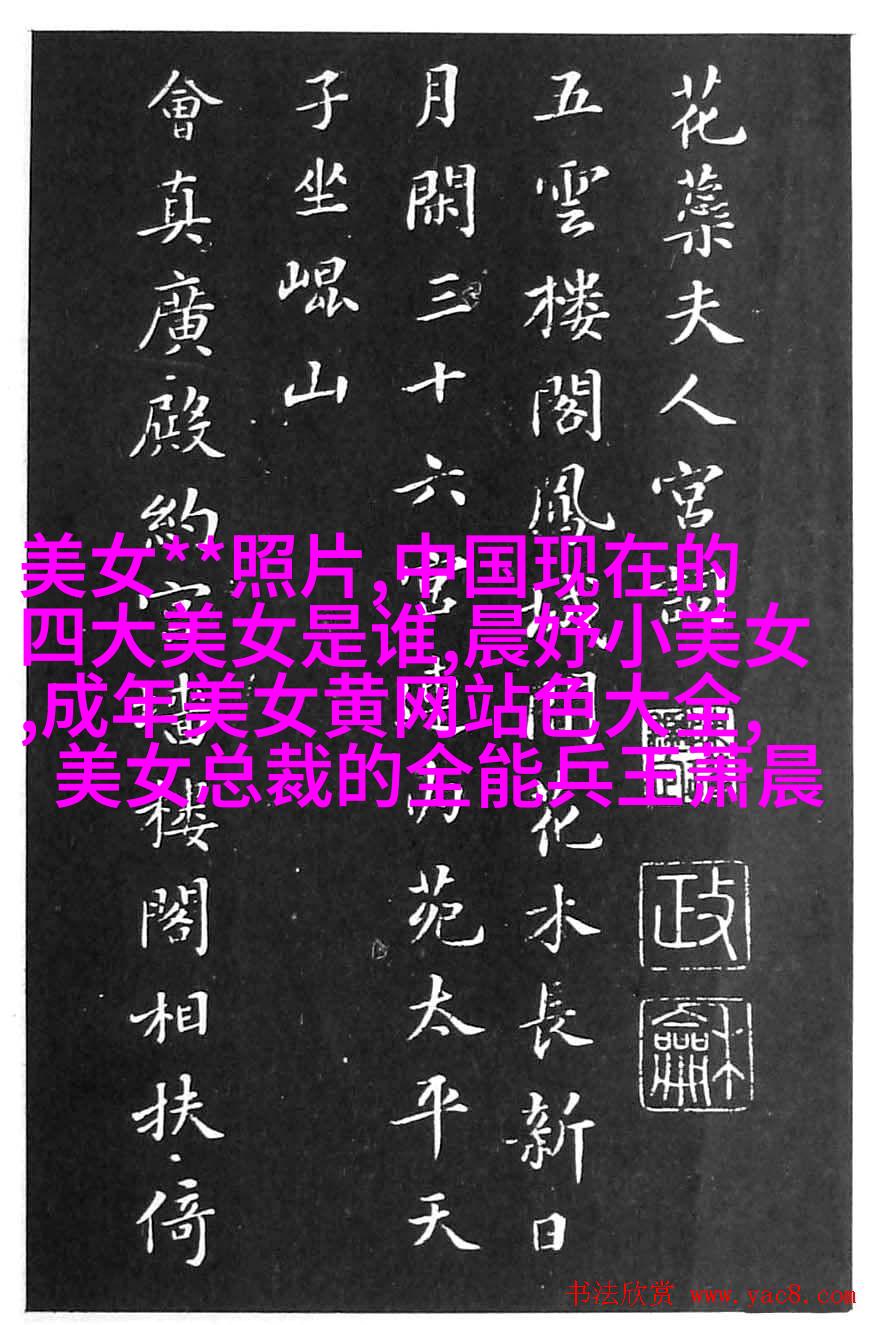 花蘂夫人宮詞
五雲楼閣鳳城間花水長新日
月閑三十六宮連内苑太平天
子坐崐山
會真廣殿約宮墻楼閣相扶倚
政
龢
美女**照片,中国现在的
四大美女是谁,晨妤小美女
,成年美女黄网站色大全,
美女总裁的全能兵王萧晨
书法欣赏 www.yac8.com